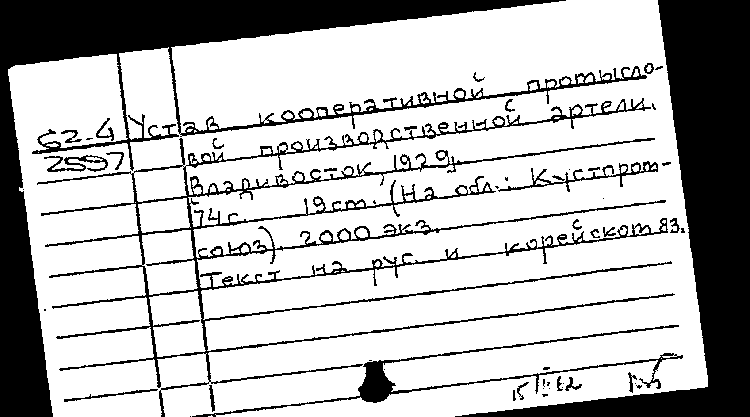 62-4 Устав кооперативной промысло-
2597 вой производственной артели.
Владивосток, 1929г.
74с. 19cm. (На обл.: Кустпром-
союз). 2000 экз.
Текст на рус. и корейском яз.
15/III 62